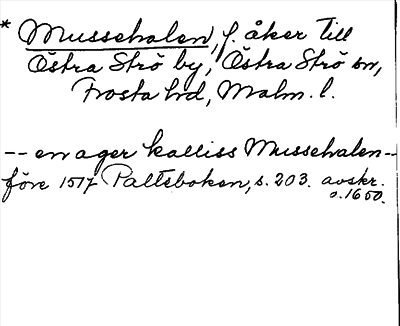 * Mussehalen, f. åker till
Östra Strö by, Östra Strö sn,
Frosta hd, Malm. l.
-- en ager kalliss Mussehalen --
före 1517 Paltsboken, s. 203. avskr.
o. 1650.